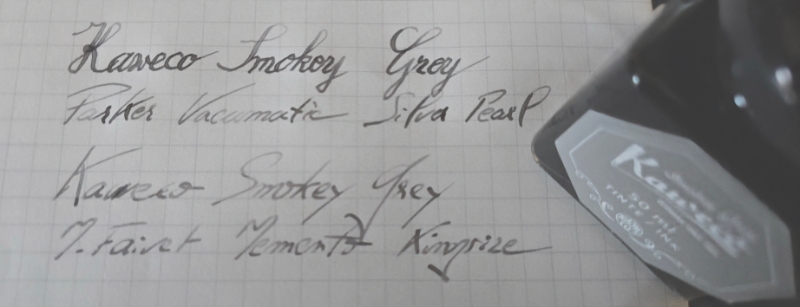 Kaweco Smokey Grey
Parker Vacumatic Silva Pearl
Kaweco Smokey Grey
Memento Kingsize
Kaweco
50 ml